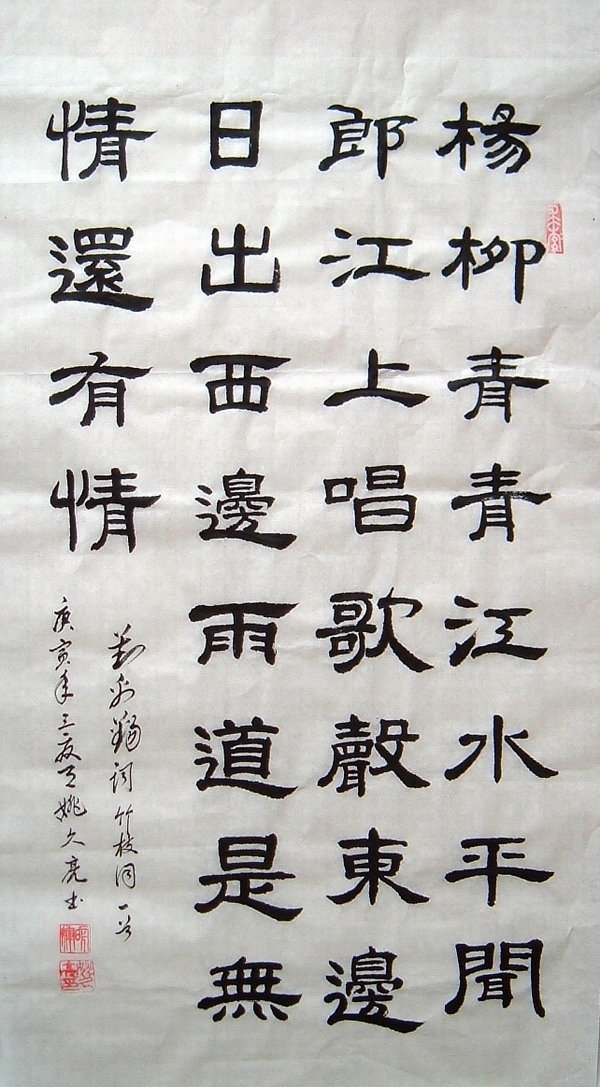 楊柳青青江水平聞
郎江上唱歌聲東邊
日出西邊雨道是無
情還有情
劉禹錫詞竹枝詞一首
庚寅年三夏天姚久亮书